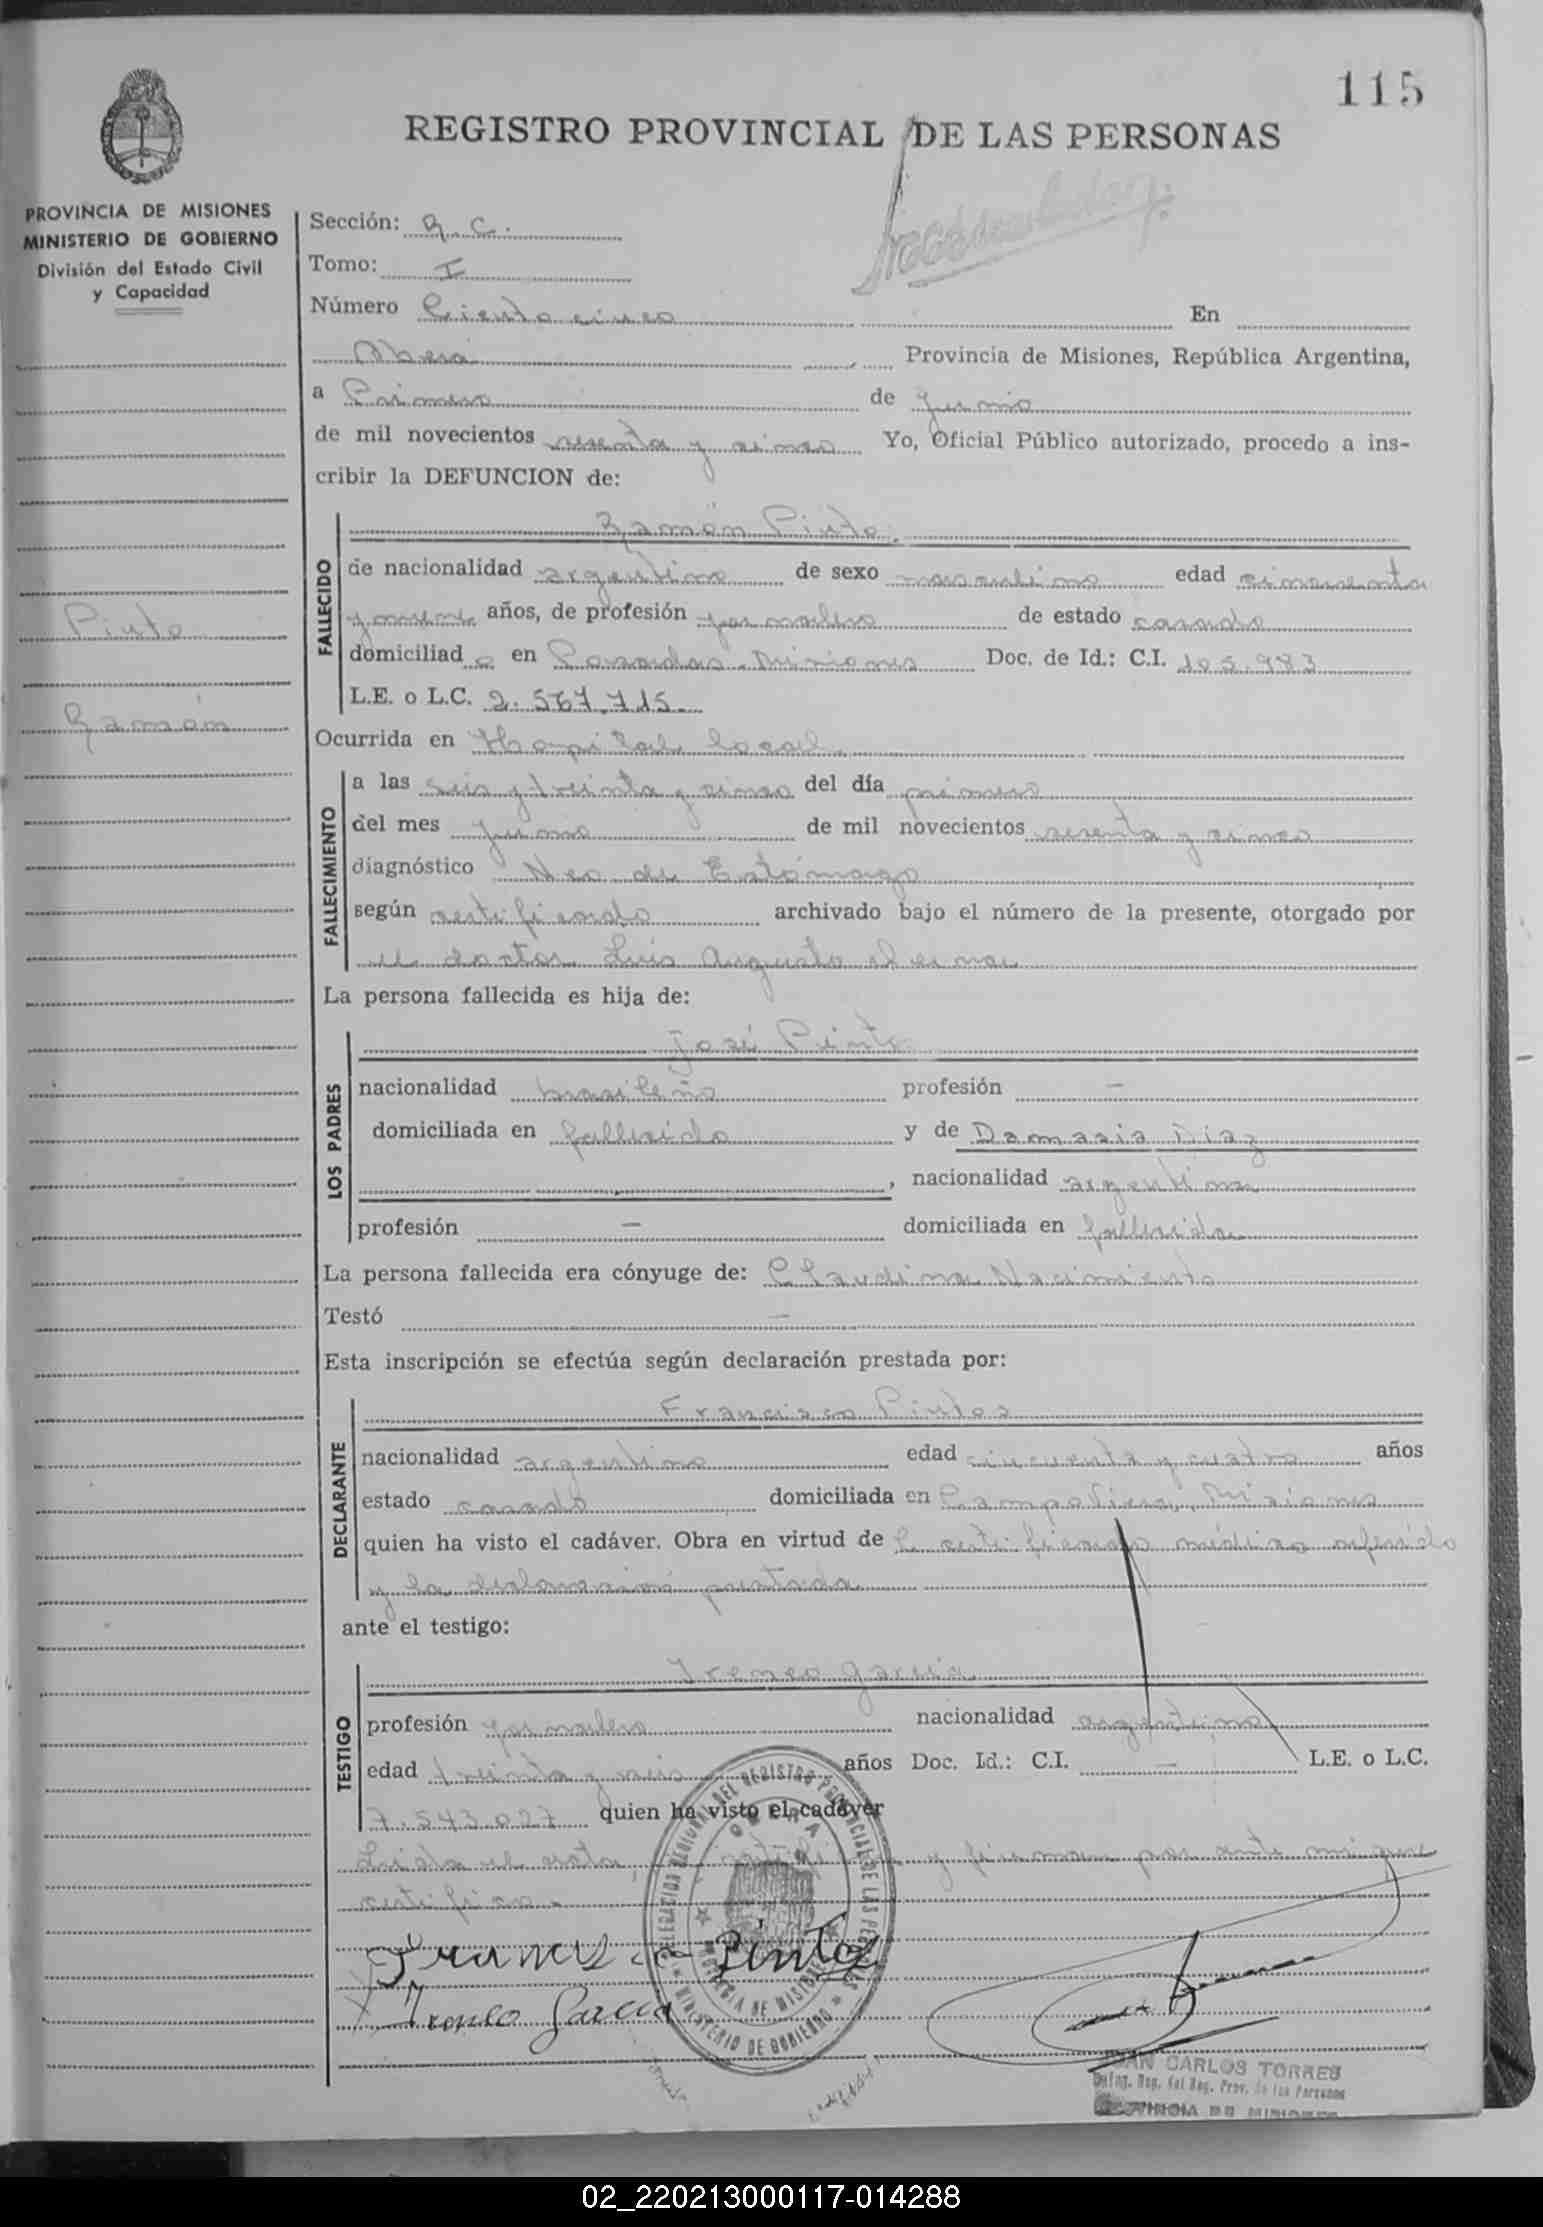 115
REGISTRO PROVINCIAL DE LAS PERSONAS
PROVINCIA DE MISIONES
MINISTERIO DE GOBIERNO
División del Estado Civil
y Capacidad
Pinto
Ramón
Sección: R. C.
Tomo: I
Número Ciento cinco En
Oberá Provincia de Misiones, República Argentina,
a Primero de junio
de mil novecientos sesenta y cinco Yo, Oficial Público autorizado, procedo a ins-
cribir la DEFUNCION de:
FALLECIDO
Ramón Pinto.
de nacionalidad argentino de sexo masculino edad cincuenta
y nueve años, de profesión jornalero de estado casado
domiciliad o en Posadas - Misiones Doc. de Id.: C.I. 105.983
L.E. o L.C. 2.567.715.
Ocurrida en Hospital local.
FALLECIMIENTO
a las seis y treinta y cinco del día primero
del mes junio de mil novecientos sesenta y cinco
diagnóstico Neo de Estómago
según certificado archivado bajo el número de la presente, otorgado por
el doctor Luis Augusto
La persona fallecida es hija de:
LOS PADRES
José Pinto
nacionalidad brasileño profesión —
domiciliada en fallecido y de Damasia Diaz
, nacionalidad argentina
profesión — domiciliada en fallecida
La persona fallecida era cónyuge de: Claudina Nacimiento
Testó —
Esta inscripción se efectúa según declaración prestada por:
DECLARANTE
Francisco Pintos
nacionalidad argentino edad cincuenta y cuatro años
estado casado domiciliada en Campo Viera, Misiones
quien ha visto el cadáver. Obra en virtud de l certificado médico referido
y la declaración prestada
ante el testigo:
TESTIGO
Ireneo García
profesión jornalero nacionalidad argentino
edad treinta y seis años Doc. Id.: C.I. — L.E. o L.C.
7.543.027 quien ha visto el cadáver
Leida el acta, y firman por ante mi que
certifico.-
Francisco Pintos
Ireneo Garcia
DELEGACION REGIONAL DEL REGISTRO PROVINCIAL DE LAS PERSONAS
OBERA
PROVINCIA DE MISIONES
MINISTERIO DE GOBIERNO
JUAN CARLOS TORRES
Deleg. Reg. del Reg. Prov. de las Personas
PROVINCIA DE MISIONES
02_220213000117-014288